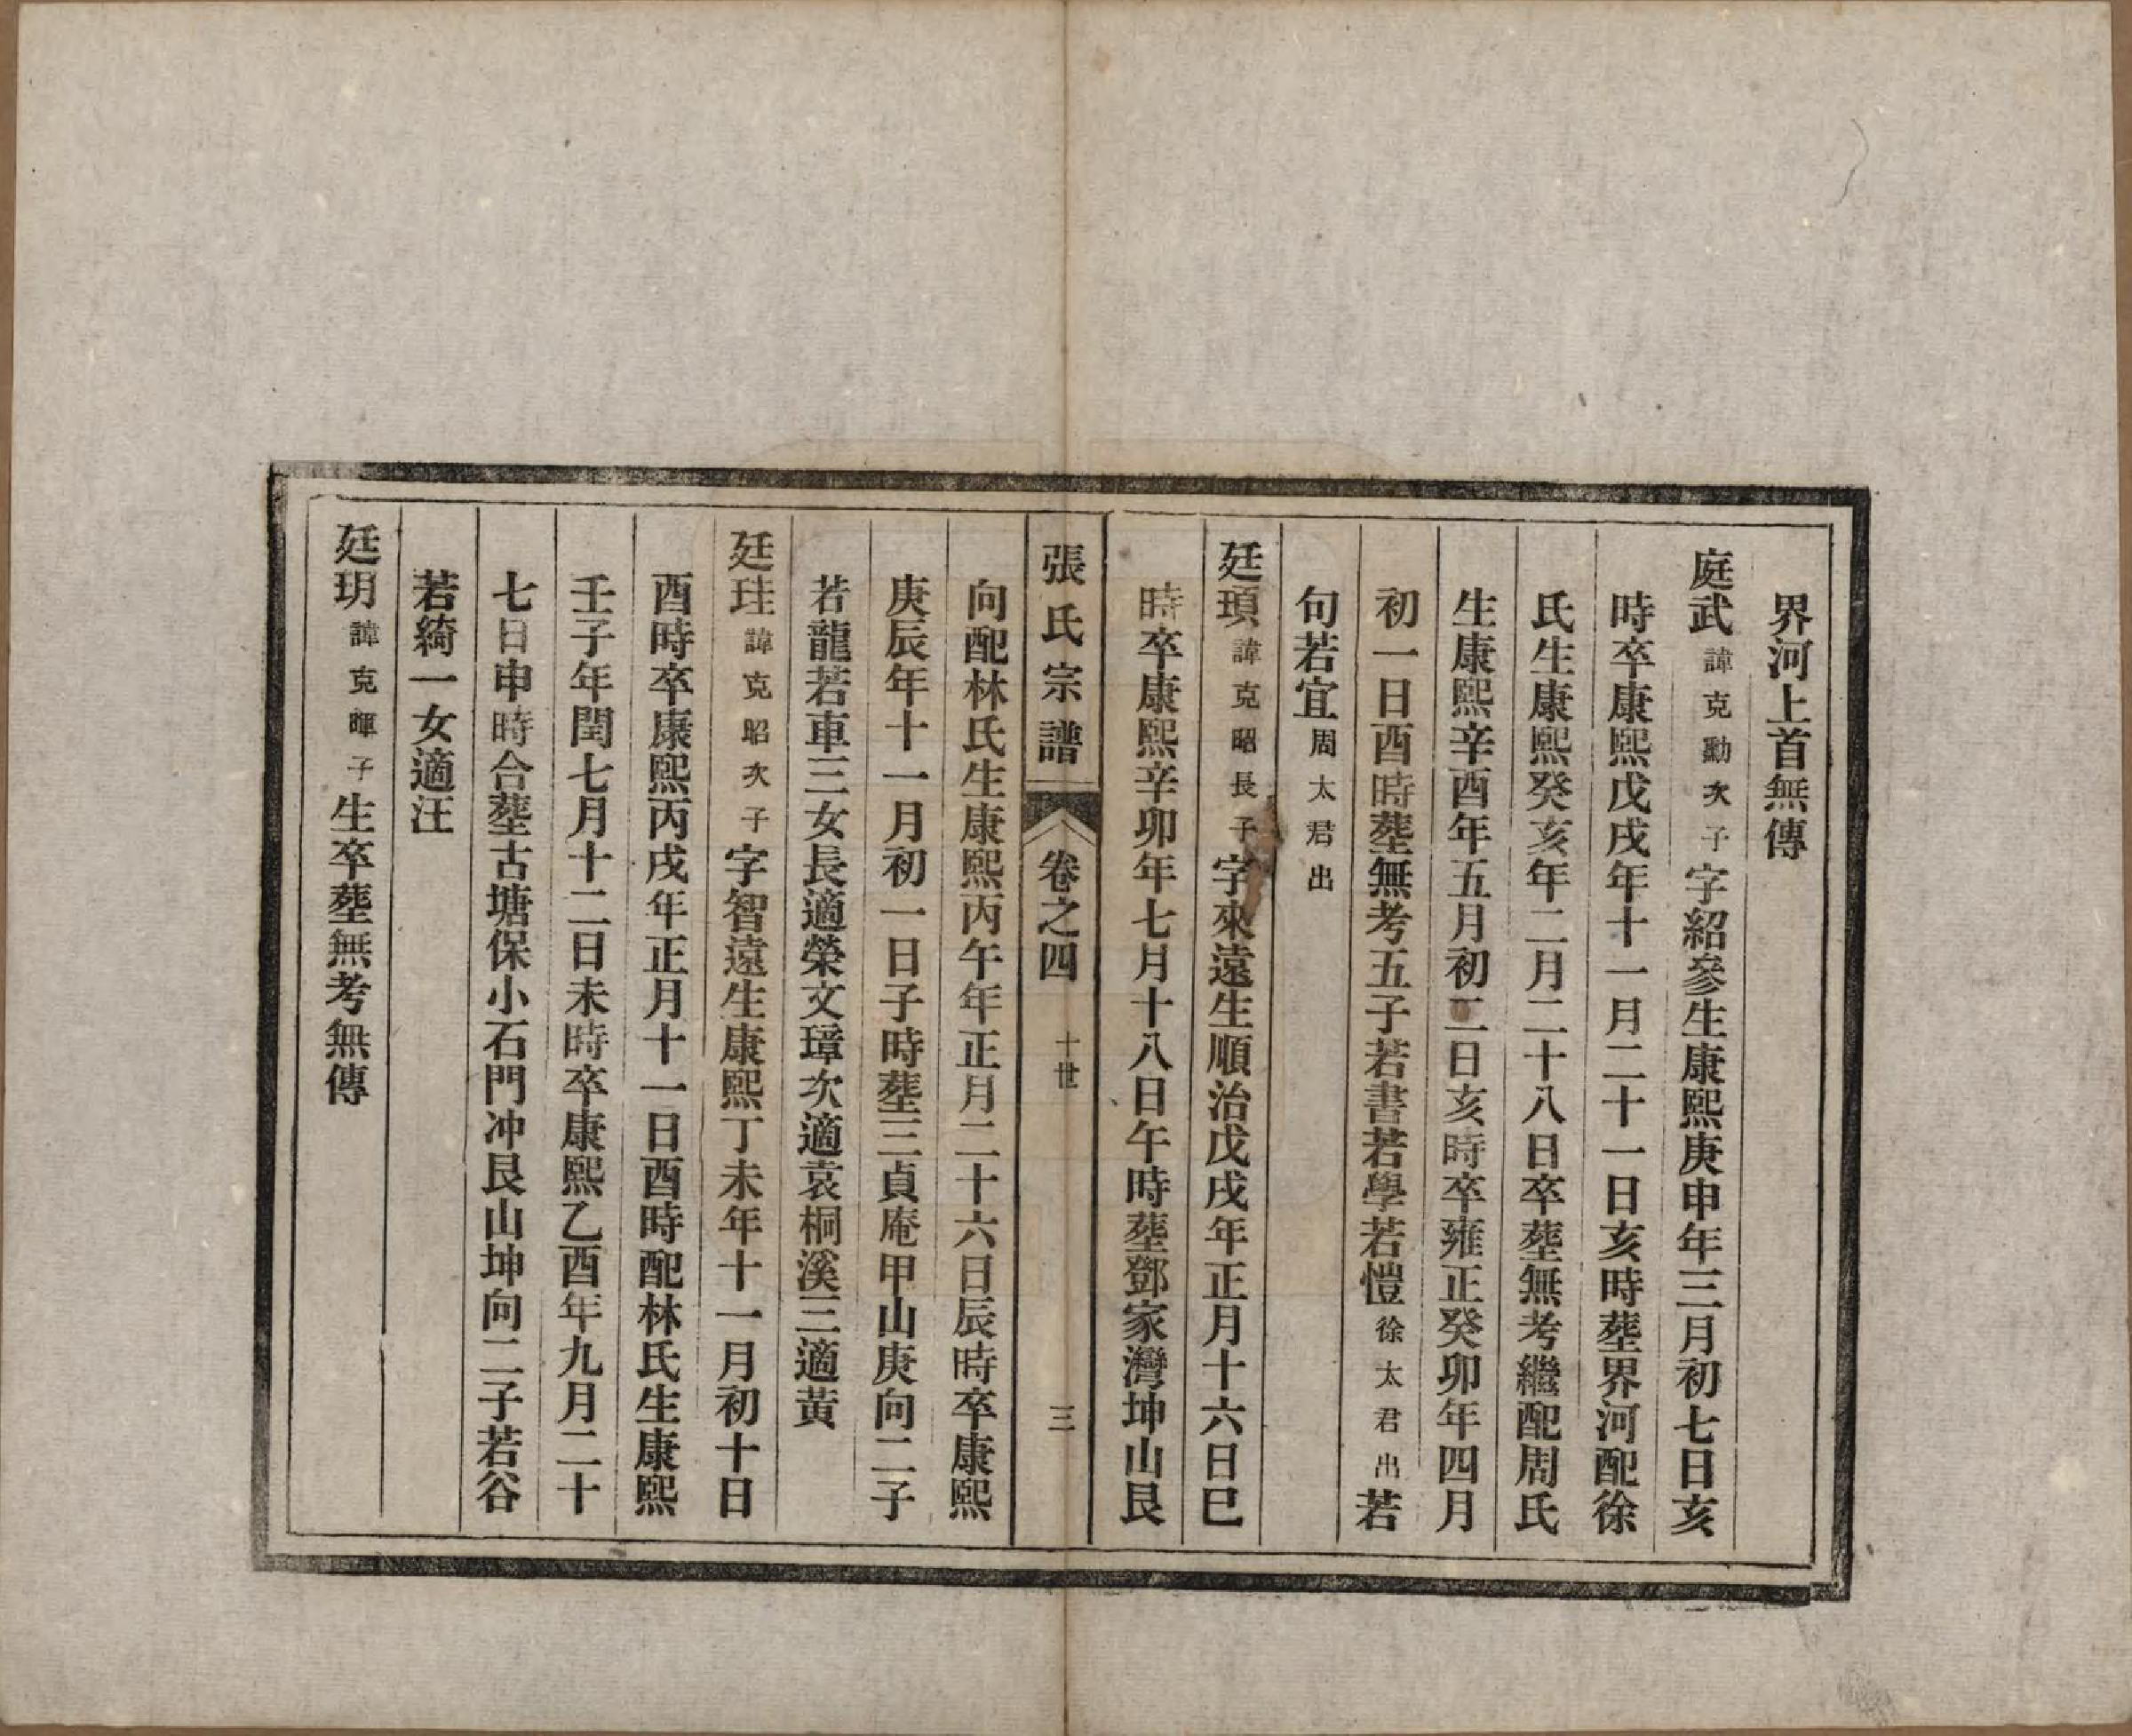 界河上首無傳
庭武諱克勳次子字紹參生康熙庚申年三月初七日亥
時卒康熙戊戌年十一月二十一日亥時塟界河配徐
氏生康熙癸亥年二月二十八日卒塟無考繼配周氏
生康熙辛酉年五月初二日亥時卒雍正癸卯年四月
初一日酉時塟無考五子若書若學若愷徐太君出若
句若宜周太君出
廷頊諱克昭長子字來遠生順治戊戌年正月十六日巳
時卒康熙辛卯年七月十八日午時塟鄧家灣坤山艮
張氏宗譜 卷之四 十世 三
向配林氏生康熙丙午年正月二十六日辰時卒康熙
庚辰年十一月初一日子時塟三貞庵甲山庚向二子
若龍若車三女長適榮文璋次適袁桐溪三適黃
廷珪諱克昭次子字智遠生康熙丁未年十一月初十日
酉時卒康熙丙戌年正月十一日酉時配林氏生康熙
壬子年閏七月十二日未時卒康熙乙酉年九月二十
七日申時合塟古塘保小石門冲艮山坤向二子若谷
若綺一女適汪
廷玥諱克暉子生卒塟無考無傳